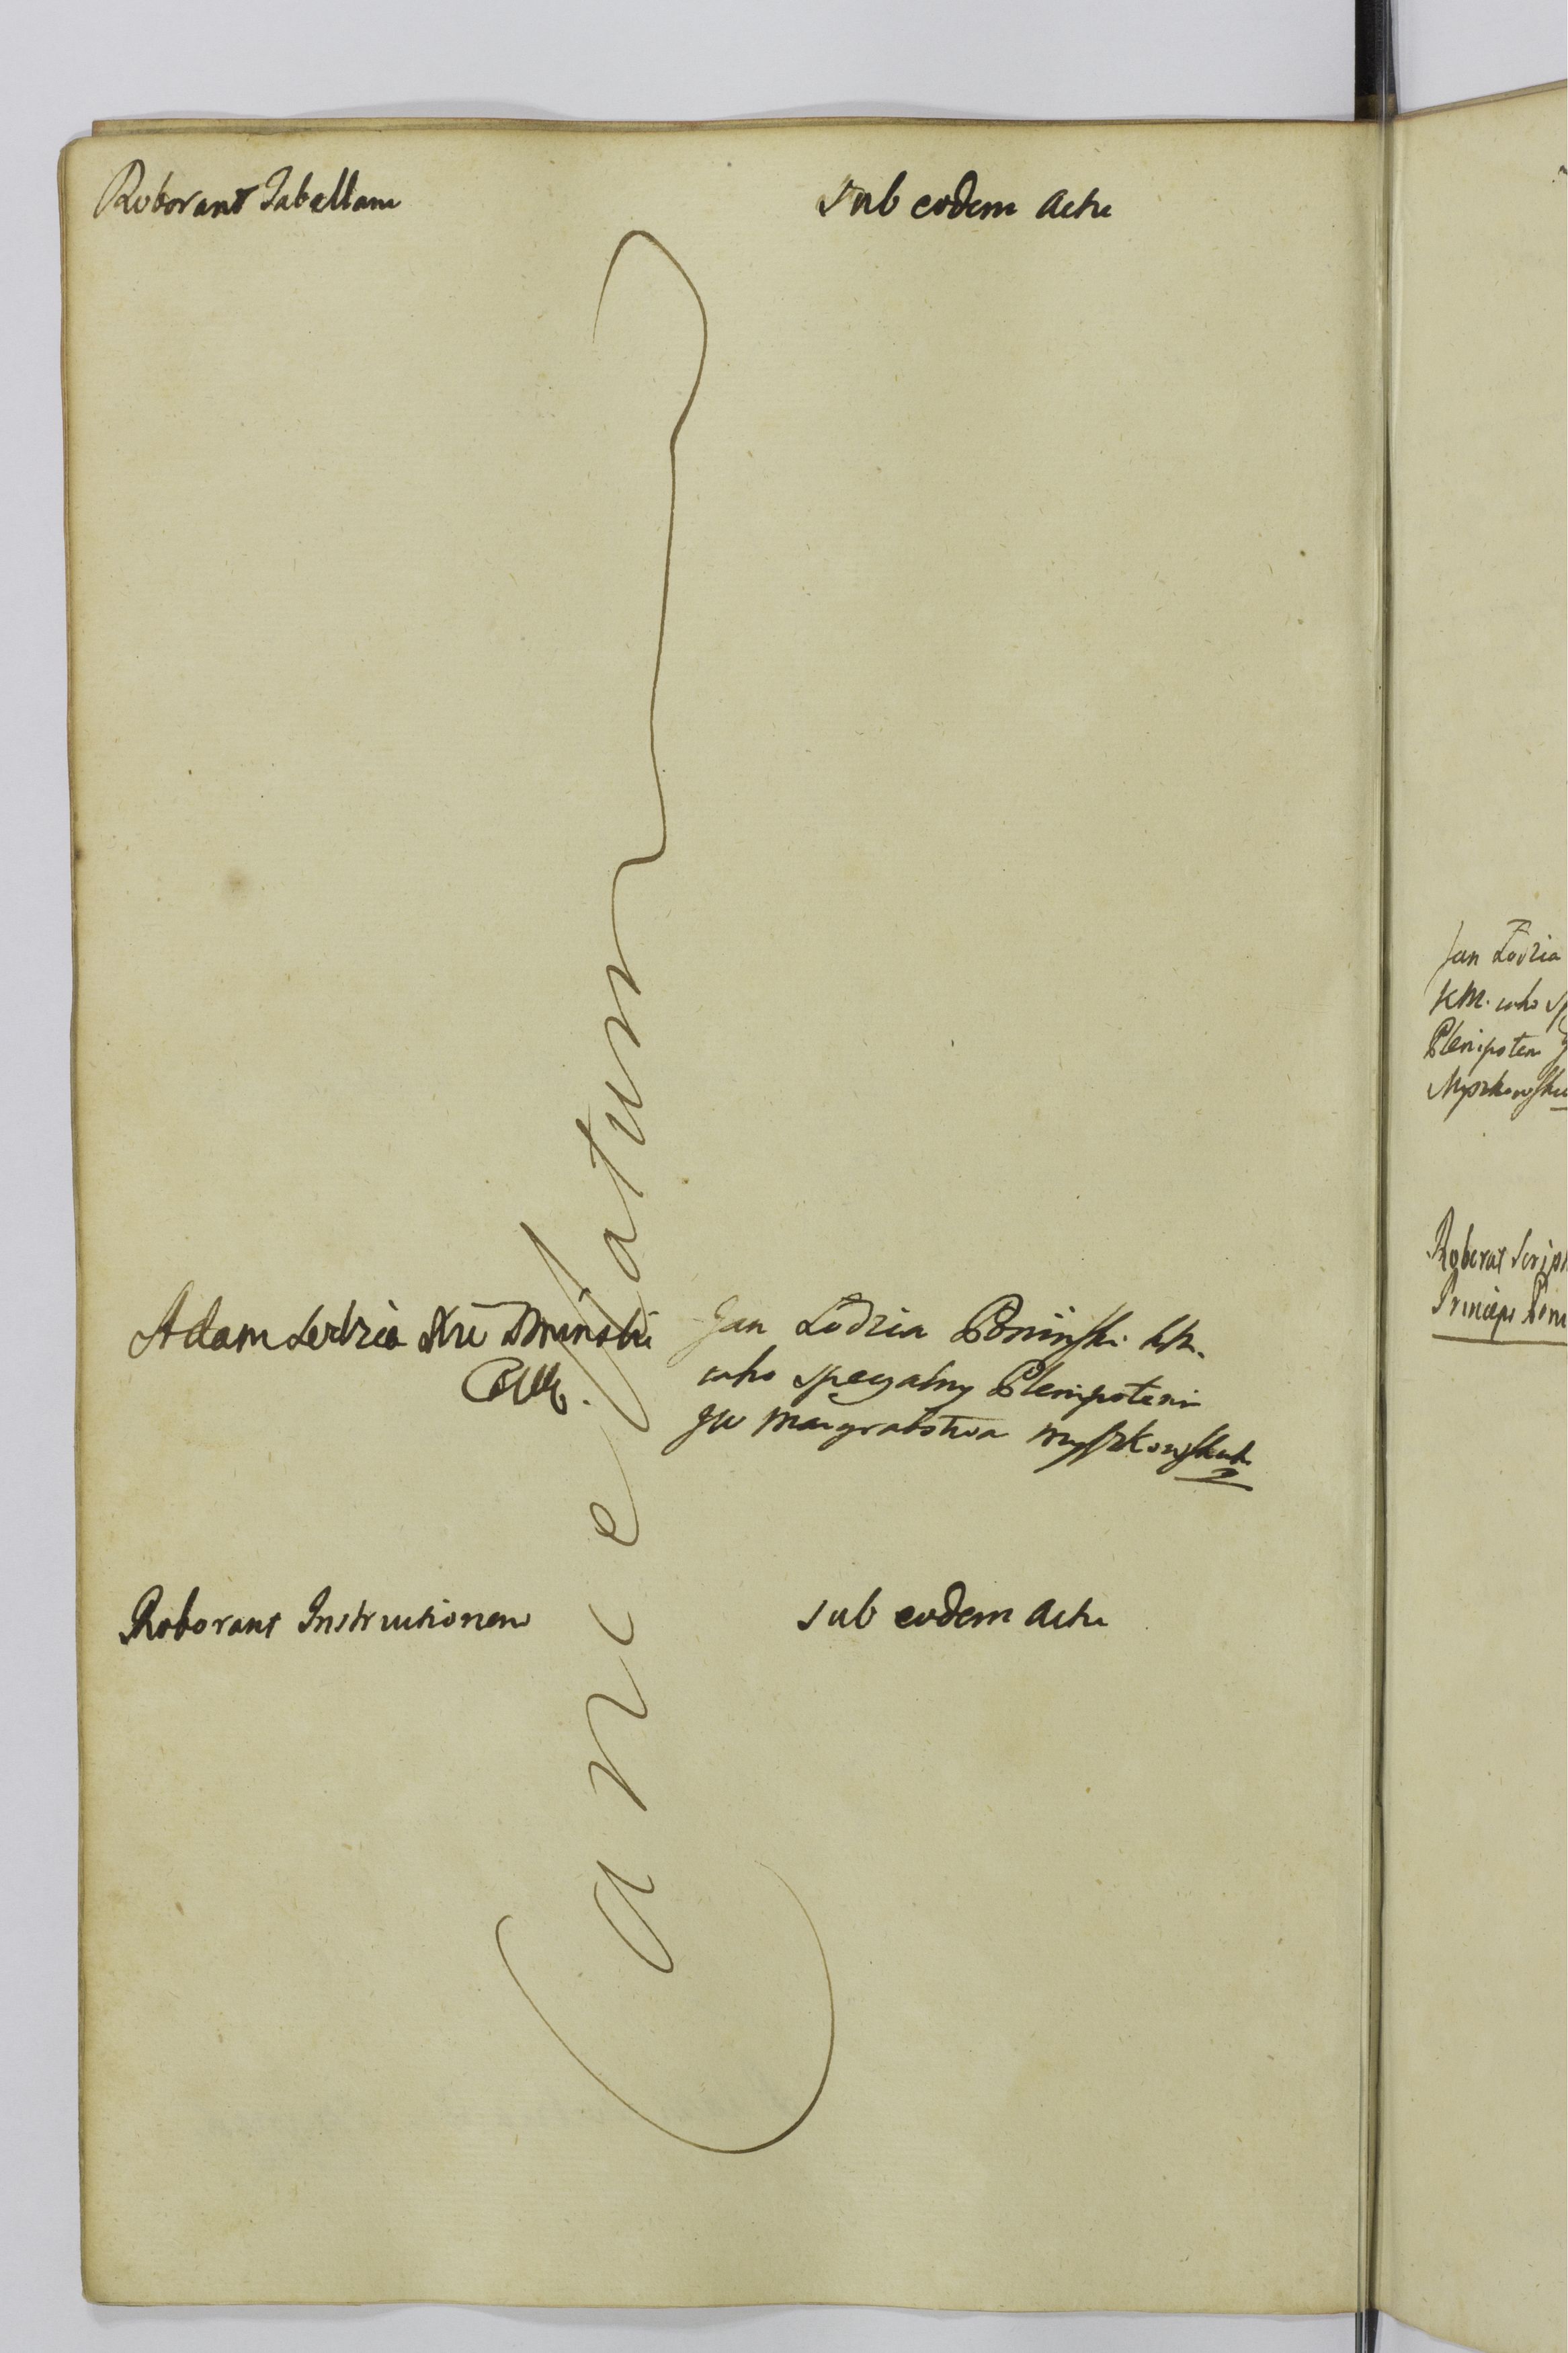 Roborant Tabellam
sub eodem Actu
Adam Lodzia Xże Poninski
Jan Lodzia Poniński KM.
iako specyalny Plenipotent
JW Margrabstwa Myszkowskich
Roborant Instructionem
sub eodem Actu
Cancellatum
Jan Lodzia
KM. iako sp
Plenipoten
Myszkowski
Roborat Scrip
Princeps Pon